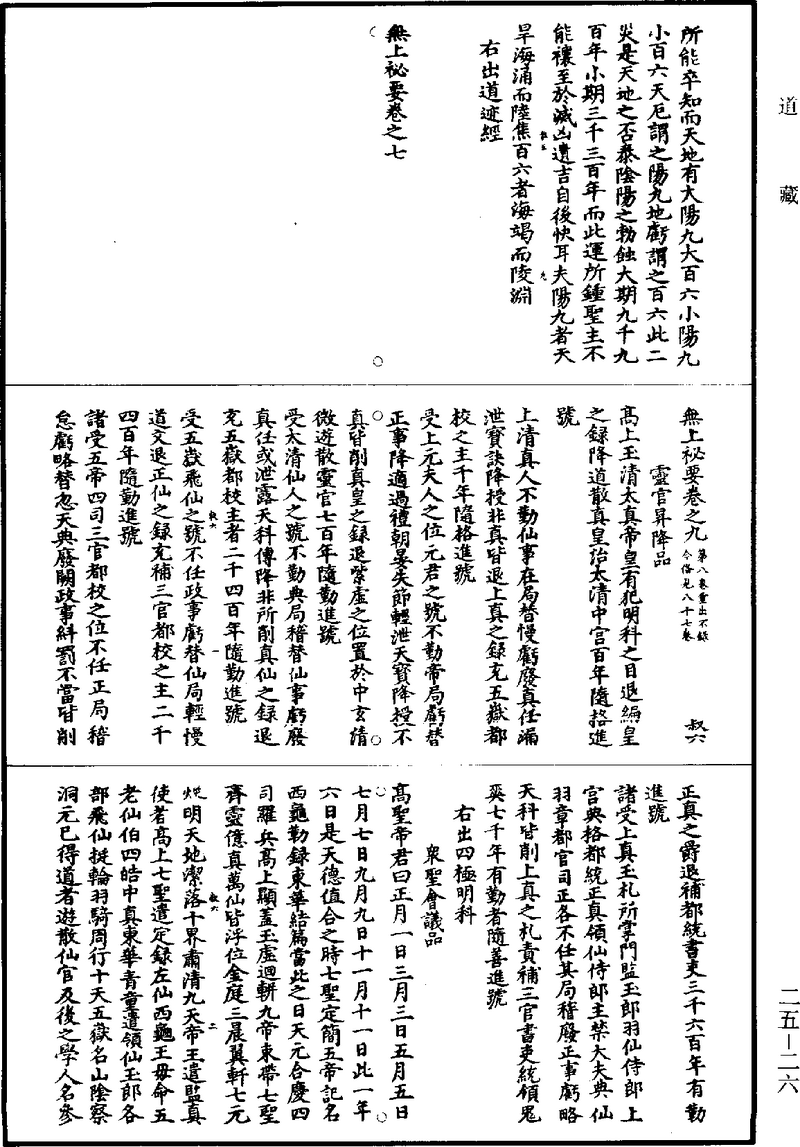 道藏
所能卒知而天地有大陽九大百六小陽九
小百六天厄謂之陽九地虧謂之百六此二
災是天地之否泰陰陽之勃蝕大期九千九
百年小期三千三百年而此運所鍾聖主不
能禳至於滅凶遺吉自後快耳夫陽九者天
旱海涌而陸焦百六者海竭而陵淵
右出道迹經
無上祕要卷之七
無上祕要卷之九 第八卷重出不錄今俗見八十七卷 叔六
靈官昇降品
高上玉清太真帝皇有犯明科之目退編皇
之録降道散真皇治太清中宮百年隨格進
號
上清真人不勤仙事在局替慢虧廢真任漏
泄寶訣降授非真皆退上真之録充五嶽都
校之主千年隨格進號
受上元夫人之位元君之號不勤帝局虧替
正事降適過禮朝晏失節輕泄天寶降授不
真皆削真皇之録退紫虛之位置於中玄清
微遊散靈官七百年隨勤進號
受太清仙人之號不勤典局稽替仙事虧廢
真任或泄露天科傳降非所削真仙之録退
充五嶽都校主者二千四百年隨勤進號
受五嶽飛仙之號不任政事虧替仙局輕慢
道文退正仙之録充補三官都校之主二千
四百年隨勤進號
諸受五帝四司三官都校之位不任正局稽
怠虧略替忽天典廢闕政事糾罰不當皆削
正真之爵退補都統書吏三千六百年有勤
進號
諸受上真玉札所掌門監玉郎羽仙侍郎上
宮典格都統正真領仙侍郎主禁大夫典仙
羽章都官司正各不任其局稽廢正事虧略
天科皆削上真之札責補三官書吏統領鬼
爽七千年有勤者隨善進號
右出四極明科
衆聖會議品
高聖帝君曰正月一日三月三日五月五日
七月七日九月九日十一月十一日此一年
六日是天德值合之時七聖定簡五帝記名
西龜勒録東華結篇當此之日天元合慶四
司羅兵高上顯蓋玉虛迴軿九帝束帶七聖
齊靈億真萬仙皆浮位金庭三晨翼軒七元
煥明天地潔落十界肅清九天帝王遣監真
使者高上七聖遣定録左仙西龜王母命五
老仙伯四皓中真東華青童遣領仙玉郎各
部飛仙挺輪羽騎周行十天五嶽名山陰察
洞元已得道者遊散仙官及後之學人名參
二五—二六